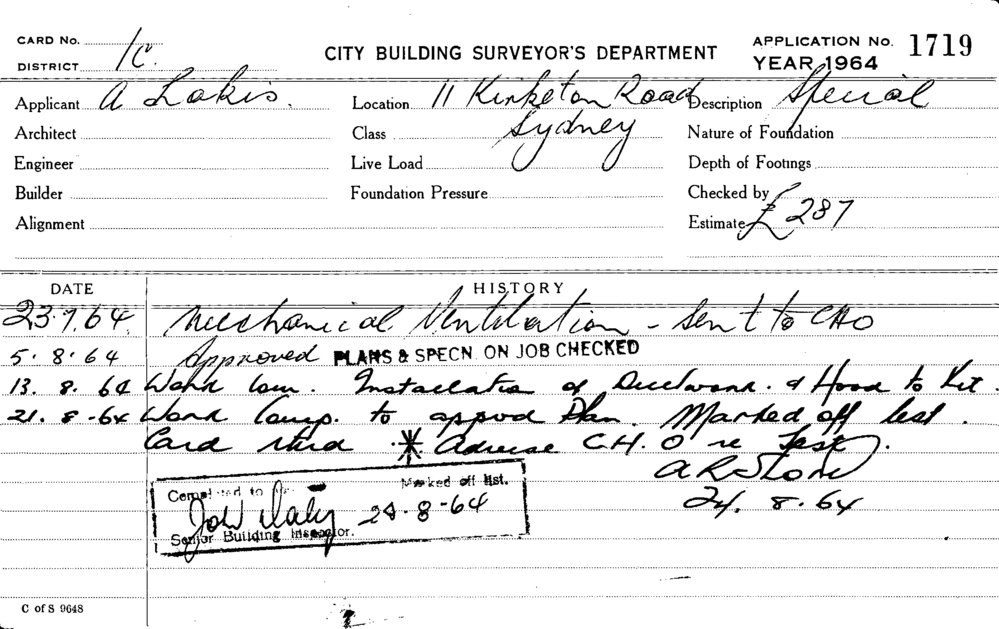 CARD No.
DISTRICT 1C.
CITY BUILDING SURVEYOR'S DEPARTMENT
APPLICATION No. 1719
YEAR 1964
Applicant A Lakis.
Location 11 Kirketon Road
Description Special
Architect
Class Sydney
Nature of Foundation
Engineer
Live Load
Depth of Footings
Builder
Foundation Pressure
Checked by
Alignment
Estimate £ 287
DATE HISTORY
23.7.64 Mechanical Ventilation - Sent to CHO
5.8.64 Approved PLANS & SPECN. ON JOB CHECKED
13.8.64 Work Com. Installation of Ductwork. & Hood to Kit.
21.8-64 Work Comp. to approd Plan. Marked off list.
Card * Advise C.H.O re Test.
24.8.64
Completed to Marked off list.
24-8-64
Senior Building Inspector.
C of S 9648